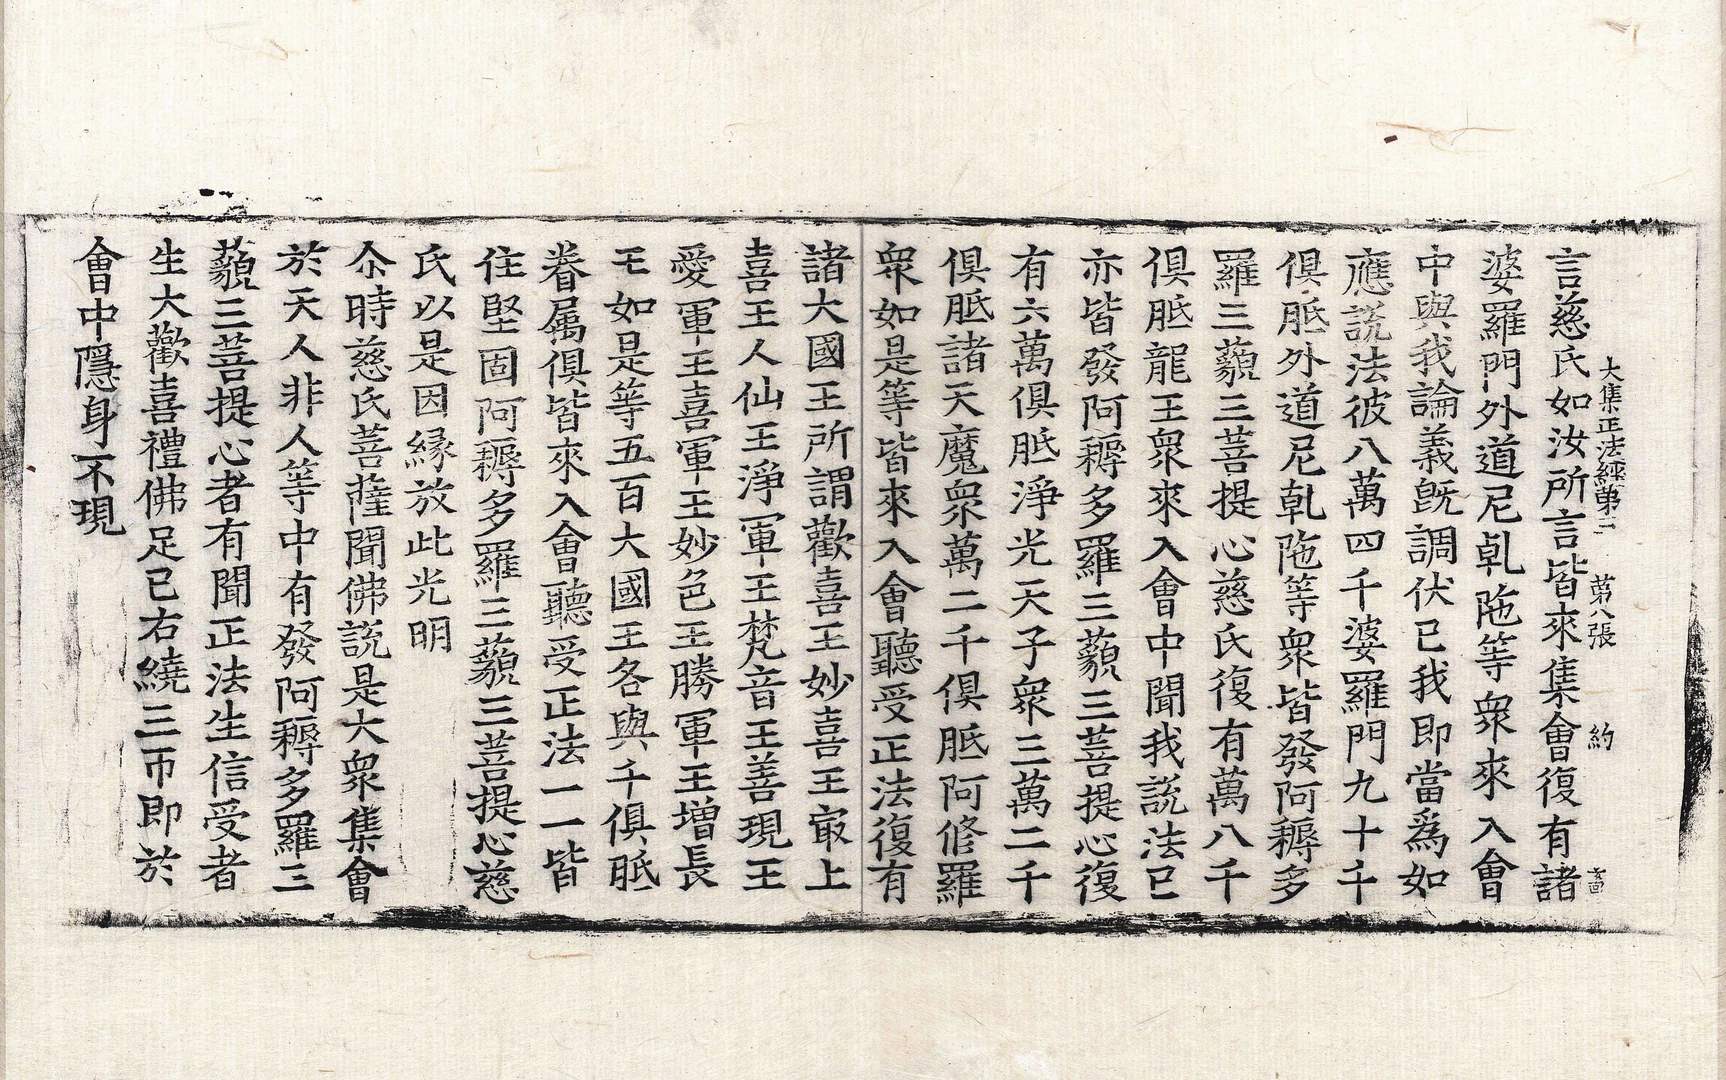 大集正法經第三 第八張 約
言慈氏如汝所言皆來集會復有諸
婆羅門外道尼乹陁等衆來入會
中與我論義旣調伏已我即當爲如
應說法彼八萬四千婆羅門九十千
俱胝外道尼乹陁等衆皆發阿耨多
羅三藐三菩提心慈氏復有萬八千
俱胝龍王衆來入會中聞我說法已
亦皆發阿耨多羅三藐三菩提心復
有六萬俱胝淨光天子衆三萬二千
俱胝諸天魔衆萬二千俱胝阿修羅
衆如是等皆來入會聽受正法復有
諸大國王所謂歡喜王妙喜王㝡上
喜王人仙王淨軍王梵音王善現王
愛軍王喜軍王妙色王勝軍王增長
王如是等五百大國王各與千俱胝
眷属俱皆來入會聽受正法一一皆
住堅固阿耨多羅三藐三菩提心慈
氏以是因縁放此光明
尒時慈氏菩薩聞佛說是大衆集會
於天人非人等中有發阿耨多羅三
藐三菩提心者有聞正法生信受者
生大歡喜禮佛足已右繞三帀即於
會中隱身不現